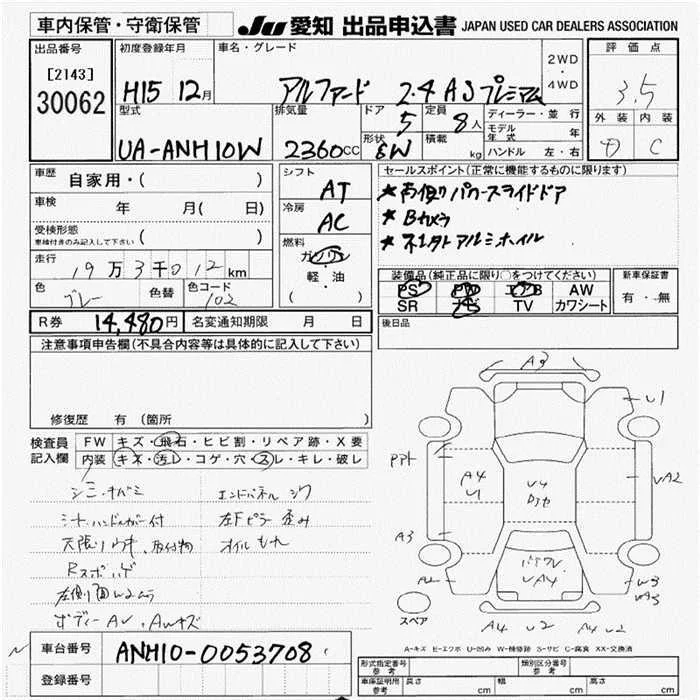 車内保管・守衛保管
JU 愛知 出品申込書 JAPAN USED CAR DEALERS ASSOCIATION
出品番号
[2143]
30062
初度登録年月
H15 12月
車名・グレード
アルファード 2.4 AS プレミアム
2WD
・
4WD
評価点
3.5
外装 内装
C
型式
UA-ANH10W
排気量
2360CC
ドア
5
形状
EW
定員
8人
積載
kg
ディーラー・並行
モデル年式 年
ハンドル 左・右
車歴 自家用・( )
車検 年 月( 日)
受検形態
車検付きのみ記入して下さい ( )
走行
19万3千012km
色 グレー 色替 色コード 102
シフト
AT
冷房
AC
燃料
ガソリン
・
軽・油
( )
セールスポイント(正常に機能するものに限ります)
★両側パワースライドドア
★Bカメラ
★社外アルミホイル
装備品(純正品に限り○をつけてください)
PS PW エアB AW
SR ナビ TV カワシート
新車保証書
有・無
R券 14,480円 名変通知期限 月 日
後日品
注意事項申告欄(不具合内容等は具体的に記入して下さい)
修復歴 有(箇所 )
検査員記入欄
FW キズ・飛石・ヒビ割・リペア跡・X要
内装 キズ・汚レ・コゲ・穴・スレ・キレ・破レ
エンドパネル シワ
シート、ハンドルカバー付
左Fピラー 歪み
オイルもれ
ボディーAU、AWキズ
A3
U1
A4
U1
U4
A3
UA4
W3
A4 U2
A4 U2
スペア
A-キズ E-エクボ U-凹み W-補修跡 S-サビ C-腐食 XX-交換済
車台番号 ANH10-0053708
登録番号
形式指定番号
参考
類別区分番号
参考
車庫証明用
参考
長さ cm 幅 cm 高さ cm